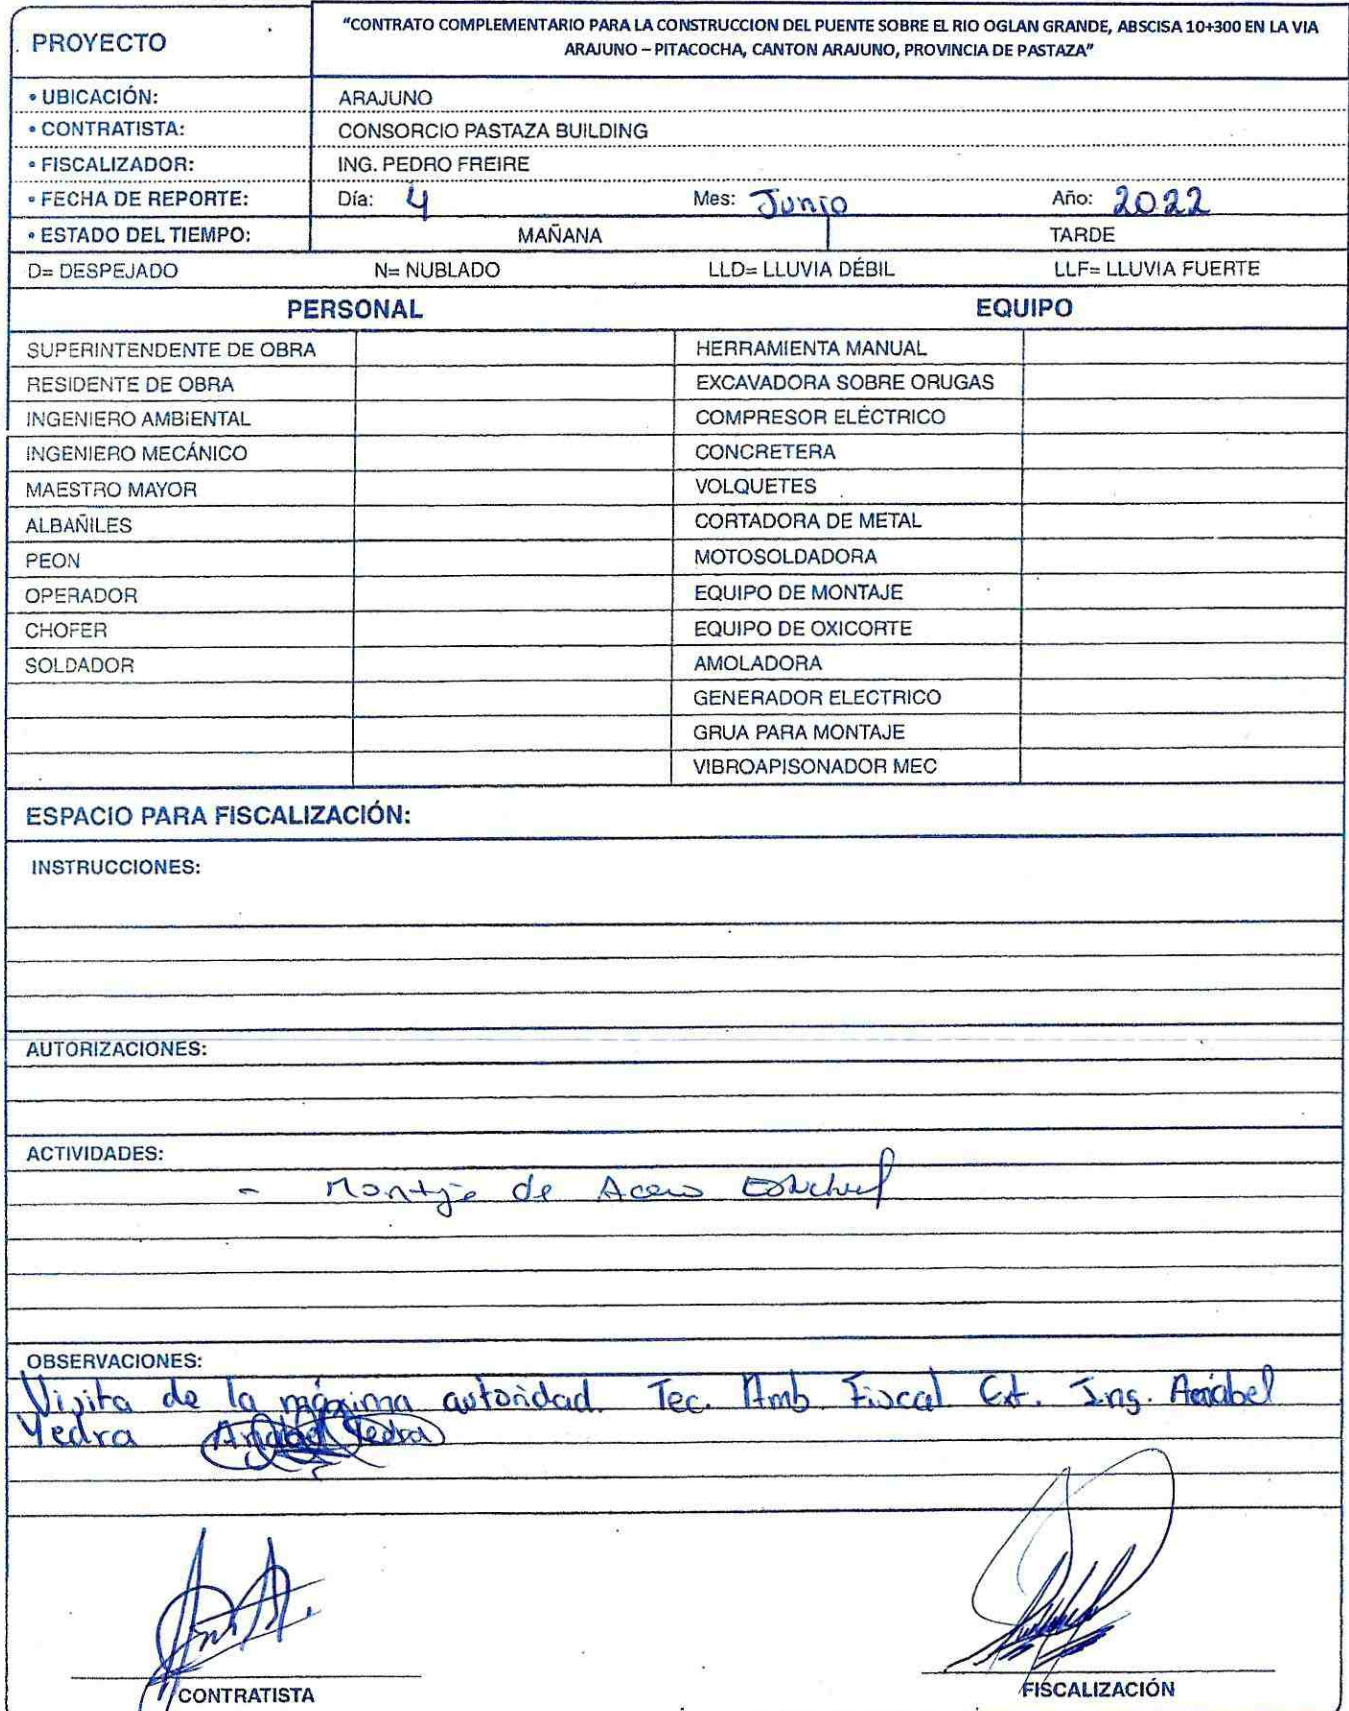 PROYECTO
"CONTRATO COMPLEMENTARIO PARA LA CONSTRUCCION DEL PUENTE SOBRE EL RIO OGLAN GRANDE, ABSCISA 10+300 EN LA VIA
ARAJUNO – PITACOCHA, CANTON ARAJUNO, PROVINCIA DE PASTAZA"
• UBICACIÓN: ARAJUNO
• CONTRATISTA: CONSORCIO PASTAZA BUILDING
• FISCALIZADOR: ING. PEDRO FREIRE
• FECHA DE REPORTE: Día: 4 Mes: Junio Año: 2022
• ESTADO DEL TIEMPO: MAÑANA TARDE
D= DESPEJADO N= NUBLADO LLD= LLUVIA DÉBIL LLF= LLUVIA FUERTE
PERSONAL EQUIPO
SUPERINTENDENTE DE OBRA HERRAMIENTA MANUAL
RESIDENTE DE OBRA EXCAVADORA SOBRE ORUGAS
INGENIERO AMBIENTAL COMPRESOR ELÉCTRICO
INGENIERO MECÁNICO CONCRETERA
MAESTRO MAYOR VOLQUETES
ALBAÑILES CORTADORA DE METAL
PEON MOTOSOLDADORA
OPERADOR EQUIPO DE MONTAJE
CHOFER EQUIPO DE OXICORTE
SOLDADOR AMOLADORA
GENERADOR ELECTRICO
GRUA PARA MONTAJE
VIBROAPISONADOR MEC
ESPACIO PARA FISCALIZACIÓN:
INSTRUCCIONES:
AUTORIZACIONES:
ACTIVIDADES:
- Montaje de Acero
OBSERVACIONES:
Visita de la máxima autoridad. Tec. Amb Fiscal Ing.
Yedra
CONTRATISTA FISCALIZACIÓN